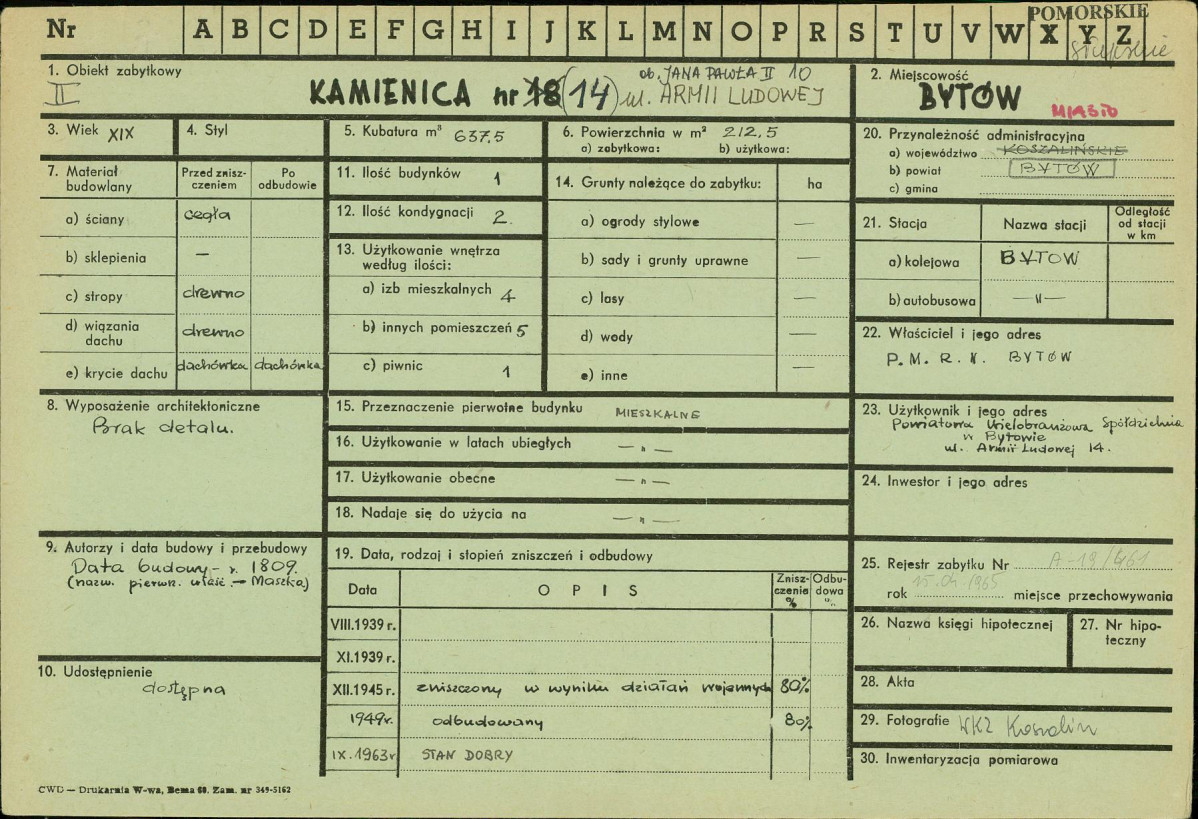 POMORSKIE
słupskie
Nr A B C D E F G H I J K L M N O P R S T U V W X Y Z
1. Obiekt zabytkowy
II
KAMIENICA nr 18 (14) ul. ARMII LUDOWEJ
ob. JANA PAWŁA II 10
2. Miejscowość
BYTÓW
MIASTO
3. Wiek XIX
4. Styl
5. Kubatura m³ 637,5
6. Powierzchnia w m² 212,5
a) zabytkowa: b) użytkowa:
7. Materiał budowlany
Przed znisz-
czeniem
Po
odbudowie
a) ściany cegła
b) sklepienia —
c) stropy drewno
d) wiązania
dachu drewno
e) krycie dachu dachówka dachówka
8. Wyposażenie architektoniczne
Brak detalu.
9. Autorzy i data budowy i przebudowy
Data budowy - r. 1809.
(nazw. pierwn. właśc. — Maszka)
10. Udostępnienie
dostępna
11. Ilość budynków 1
12. Ilość kondygnacji 2.
13. Użytkowanie wnętrza
według ilości:
a) izb mieszkalnych 4
b) innych pomieszczeń 5
c) piwnic 1
14. Grunty należące do zabytku: ha
a) ogrody stylowe —
b) sady i grunty uprawne —
c) lasy —
d) wody —
e) inne —
15. Przeznaczenie pierwotne budynku MIESZKALNE
16. Użytkowanie w latach ubiegłych — „ —
17. Użytkowanie obecne — „ —
18. Nadaje się do użycia na — „ —
19. Data, rodzaj i stopień zniszczeń i odbudowy
Data O P I S Znisz-
czenia
% Odbu-
dowa
%
VIII.1939 r.
XI.1939 r.
XII.1945 r. zniszczony w wyniku działań wojennych 80%
1949r. odbudowany 80%
IX.1963r STAN DOBRY
20. Przynależność administracyjna
a) województwo KOSZALIŃSKIE
b) powiat BYTÓW
c) gmina
21. Stacja Nazwa stacji Odległość
od stacji
w km
a) kolejowa BYTOW
b) autobusowa —„—
22. Właściciel i jego adres
P. M. R. N. BYTÓW
23. Użytkownik i jego adres
Powiatowa Wielobranżowa Spółdzielnia
w Bytowie
ul. Armii Ludowej 14.
24. Inwestor i jego adres
25. Rejestr zabytku Nr A-19/461
rok 15.04.1965 miejsce przechowywania
26. Nazwa księgi hipotecznej
27. Nr hipo-
teczny
28. Akta
29. Fotografie WKZ Koszalin
30. Inwentaryzacja pomiarowa
CWD — Drukarnia W-wa, Bema 60. Zam. nr 349-5162